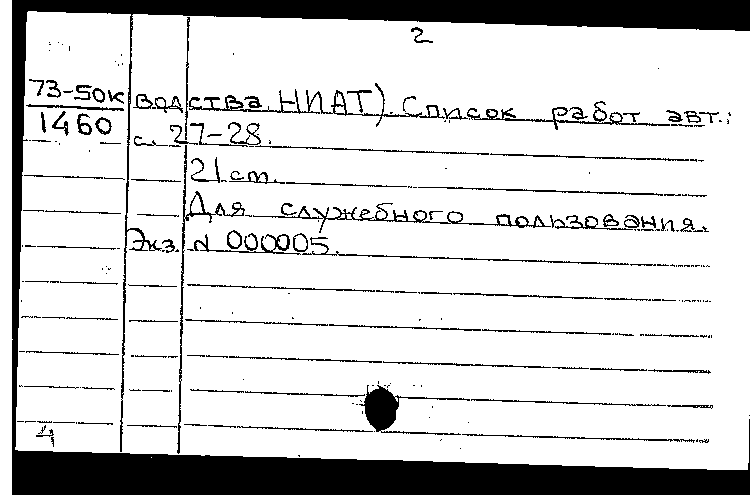 2
73-50к водства НИАТ). Список работ авт.:
1460 с. 27-28.
21 см.
Для служебного пользования.
Экз. N 000005.
4